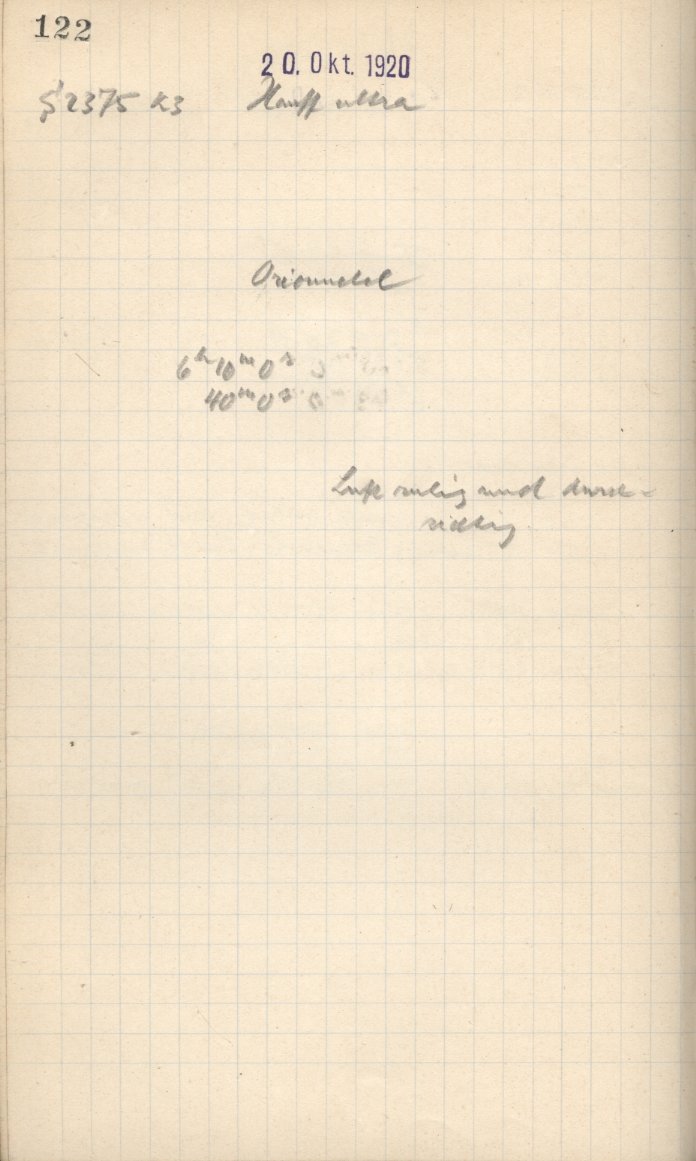 122
20. Okt. 1920
§ 2375 K3 Hauff ultra
Orionnebel
6h 10m 0s
40m 0s
Luft ruhig und durch-
sichtig